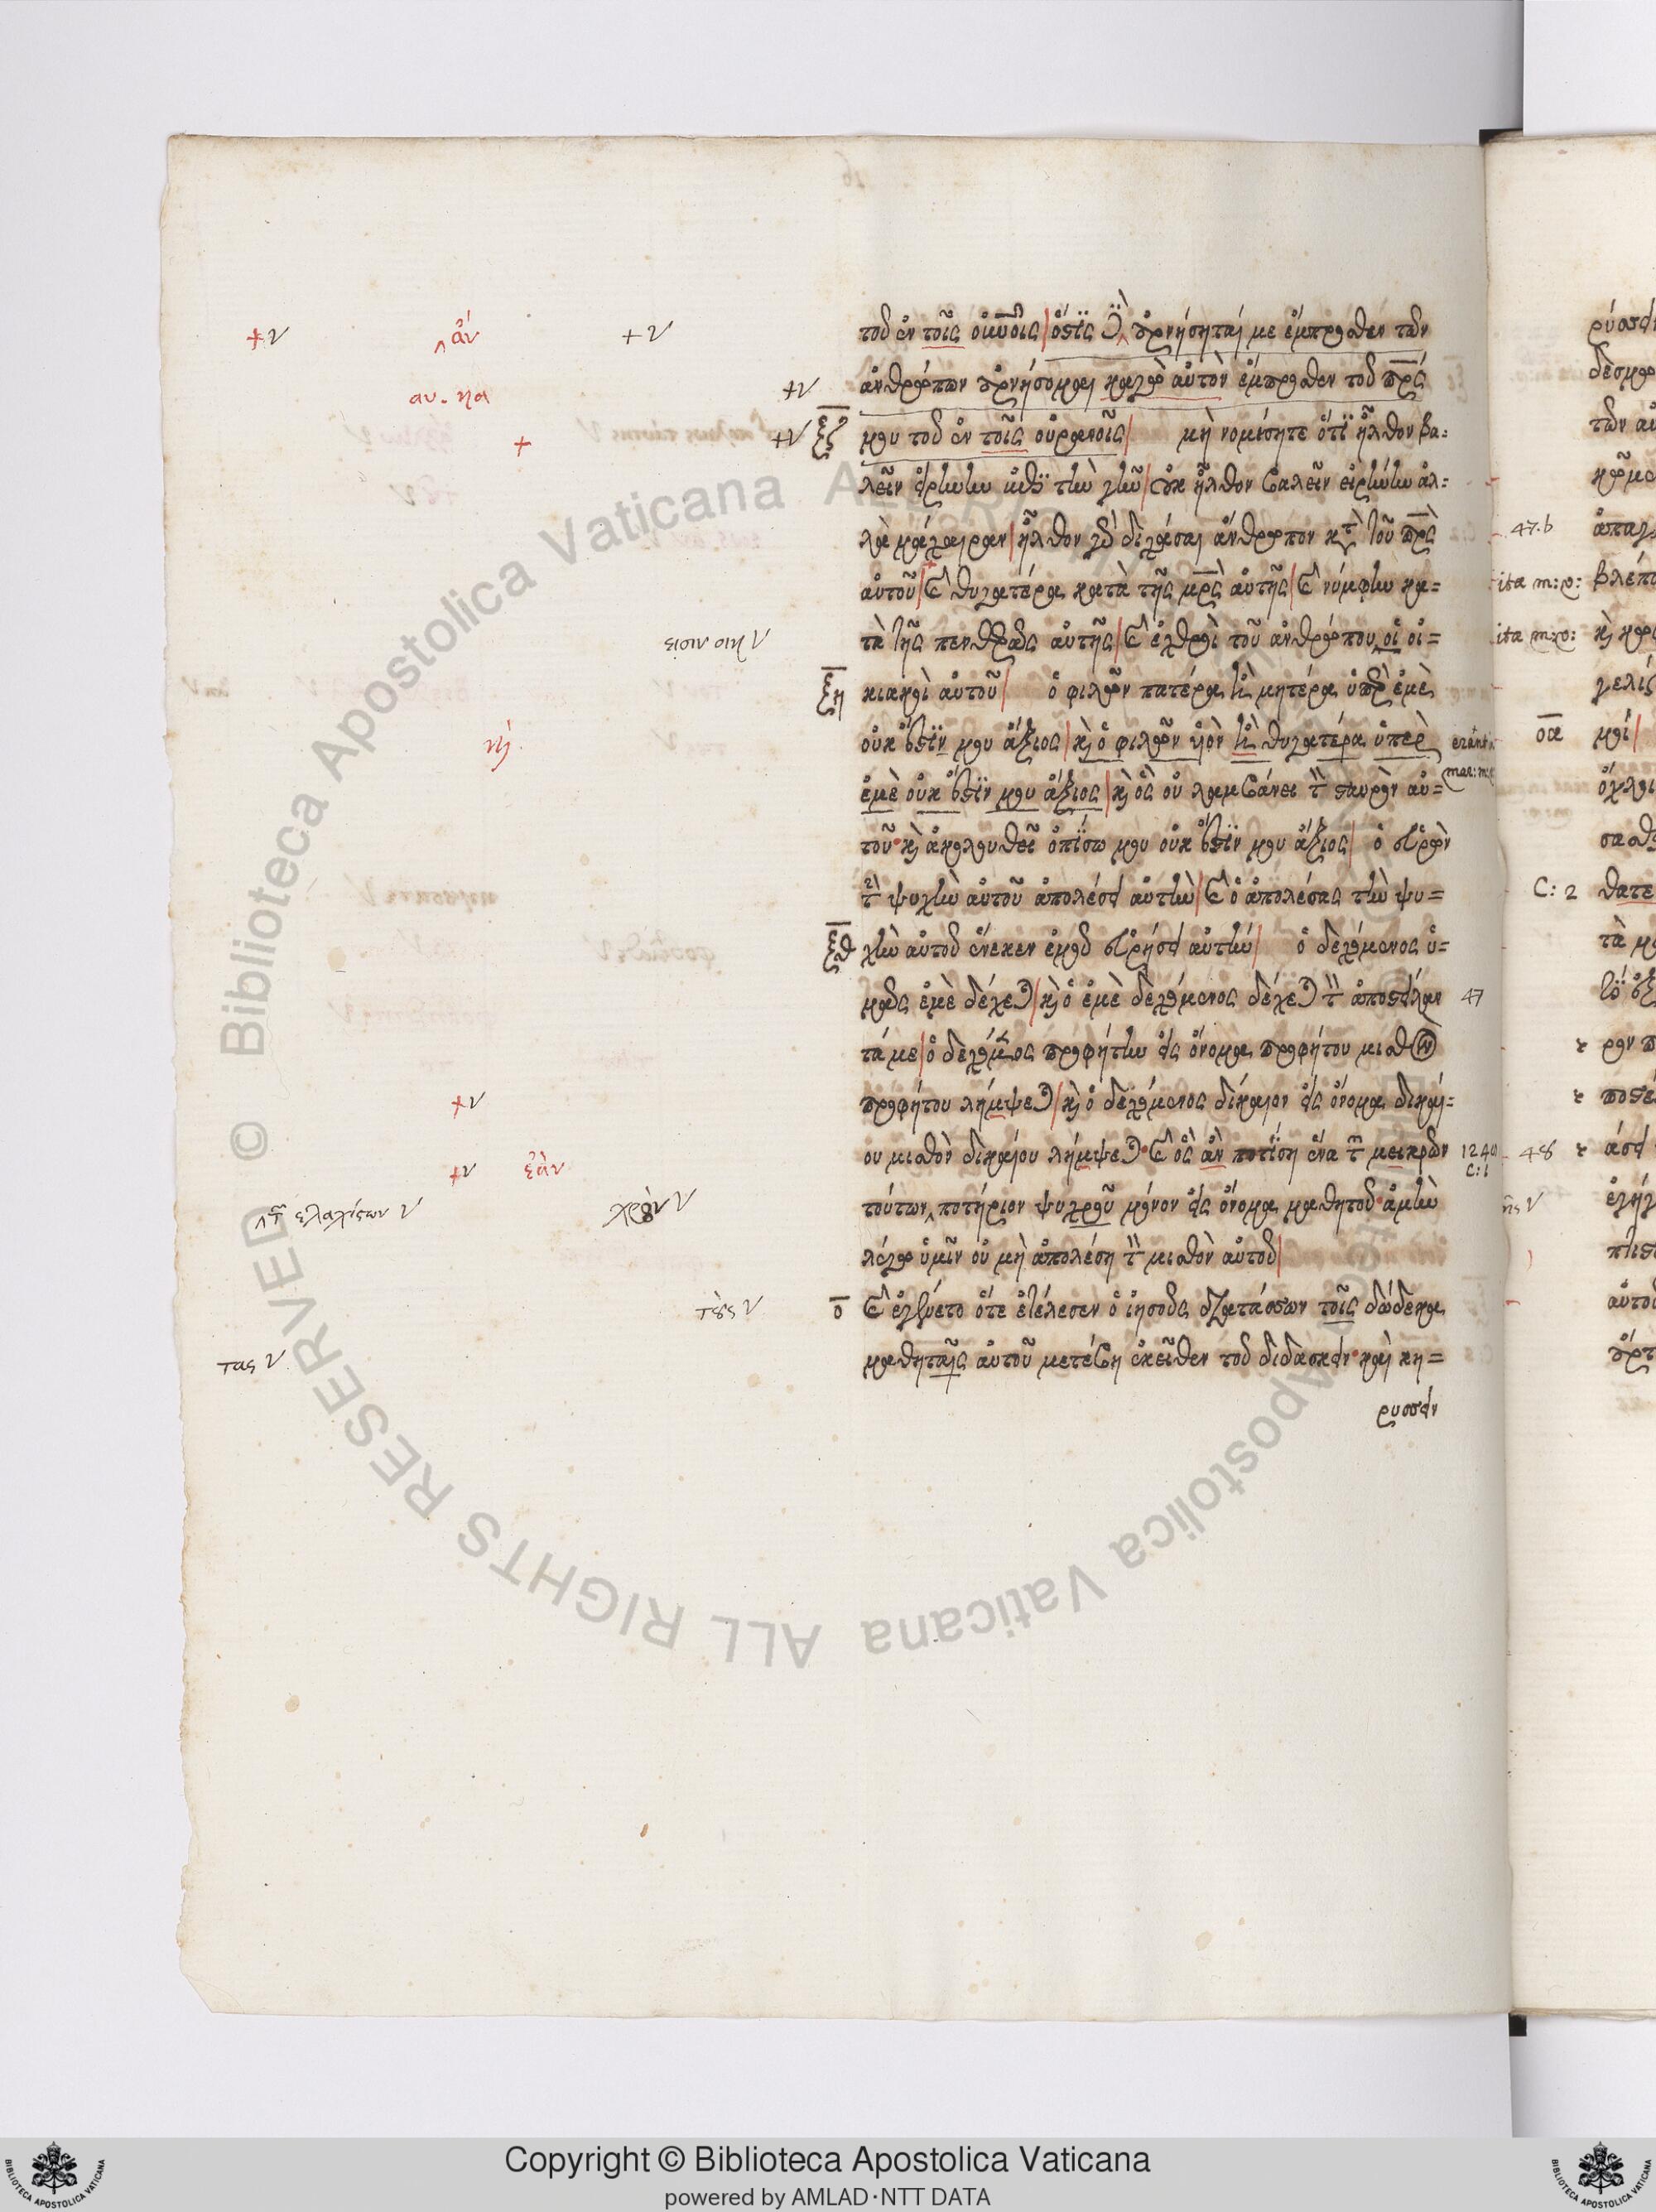 τοῦ ἐν τοῖς οὐνοῖς ὅστις δ' ἀρνήσηταί με ἔμπροσθεν τῶν
ἀνθρώπων ἀρνήσομαι κἀγὼ αὐτὸν ἔμπροσθεν τοῦ πρς
μου τοῦ ἐν τοῖς οὐρανοῖς μὴ νομίσητε ὅτι ἦλθον βα=
λεῖν εἰρήνην ἐπὶ τὴν γῆν οὐκ ἦλθον βαλεῖν εἰρήνην ἀλ=
λὰ μάχαιραν ἦλθον γὰρ διχάσαι ἄνθρωπον κατὰ τοῦ πρς
αὐτοῦ καὶ θυγατέρα κατὰ τῆς μρς αὐτῆς καὶ νύμφην κα=
τὰ τῆς πενθερᾶς αὐτῆς καὶ ἐχθροὶ τοῦ ἀνθρώπου οἱ οἰ=
κιακοὶ αὐτοῦ ὁ φιλῶν πατέρα ἢ μητέρα ὑπὲρ ἐμὲ
οὐκ ἔστιν μου ἄξιος καὶ ὁ φιλῶν υἱὸν ἢ θυγατέρα ὑπὲρ
ἐμὲ οὐκ ἔστιν μου ἄξιος καὶ ὃς οὐ λαμβάνει τὸν σταυρὸν αὐ=
τοῦ καὶ ἀκολουθεῖ ὀπίσω μου οὐκ ἔστιν μου ἄξιος ὁ εὑρὼν
τὴν ψυχὴν αὐτοῦ ἀπολέσει αὐτὴν καὶ ὁ ἀπολέσας τὴν ψυ=
χὴν αὐτοῦ ἕνεκεν ἐμοῦ εὑρήσει αὐτήν ὁ δεχόμενος ὑ=
μᾶς ἐμὲ δέχεται καὶ ὁ ἐμὲ δεχόμενος δέχεται τὸν ἀποστείλαν
τά με ὁ δεχόμενος προφήτην εἰς ὄνομα προφήτου μισθὸν
προφήτου λήμψεται καὶ ὁ δεχόμενος δίκαιον εἰς ὄνομα δικαί=
ου μισθὸν δικαίου λήμψεται καὶ ὃς ἂν ποτίση ἕνα τῶν μεικρῶν
τούτων ποτήριον ψυχροῦ μόνον εἰς ὄνομα μαθητοῦ ἀμὴν
λέγω ὑμῖν οὐ μὴ ἀπολέση τὸν μισθὸν αὐτοῦ
καὶ ἐγένετο ὅτε ἐτέλεσεν ὁ ἰησοῦς διατάσσων τοῖς δώδεκα
μαθηταῖς αὐτοῦ μετέβη ἐκεῖθεν τοῦ διδάσκειν καὶ κη=
ρυσσειν
ξζ
ξη
ξθ
ο
ἂν
ἐὰν
ἐλαχίστων
τας
47
47.b
ita m:o:
ita m:o:
48
C: 2
οα
Copyright © Biblioteca Apostolica Vaticana
powered by AMLAD·NTT DATA